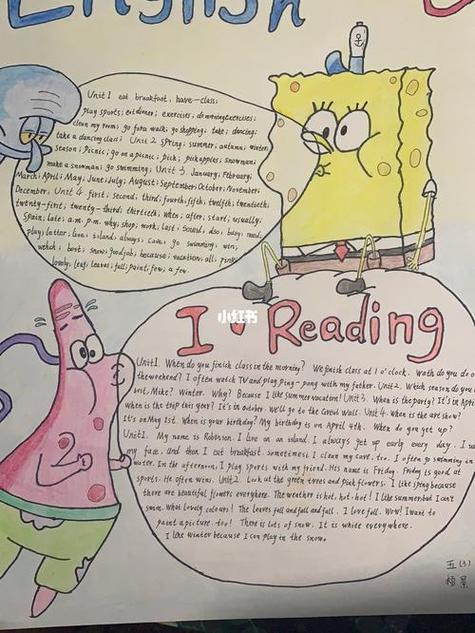 English
Unit 1 eat breakfast; have—class;
play sports; eat dinner; exercises; do morning exercises;
clean my room; go for a walk; go shopping; take; dancing;
take a dancing class; Unit 2 spring; summer; autumn; winter;
season; picnic; go on a picnic; pick; pick apples; snowman;
make a snowman; go swimming; Unit 3 January; February;
March; April; May; June; July; August; September; October; November;
December; Unit 4 first; second; third; fourth; fifth; twelfth; twentieth;
twenty-first; twenty-third; thirtieth; when; after; start; usually;
Spain; late; a.m. p.m. why; shop; work; last; sound; also; busy; need;
play; letter; live; island; always; cave; go swimming; win;
because; vacation; all; pink;
lovely; leaf; leaves; fall; paint; few; a few
小红书
I Reading
Unit1. When do you finish class in the morning? We finish class at 1 o'clock. do you do o
the weekend? I often watch TV and play ping-pong with my father. Unit2. Which season do you
best, Mike? Winter. Why? Because I like summer vacation! Unit3. When is the party? It's in April
When is the trip this year? It's in october. We'll go to the Great Wall. Unit 4. When is the art show?
It's on May 1st. When is your birthday? My birthday is on April 4th. When do you get up?
Unit1. My name is Robinson. I live on an island. I always get up early every day. I
my face. and then I eat breakfast. sometimes I clean my cave, too. I often go swimming in
water. In the afternoon, I play sports with my friend. His name is Friday. Friday is good at
sports. He often wins. Unit2. Look at the green trees and pick flowers. I like spring because
there are beautiful flowers everywhere. The weather is hot. hot. hot! I like summer but I can't
swim. What lovely colours! The leaves fall and fall and fall. I love fall. Wow! I want to
paint a picture. too! There is lots of snow. It is white everywhere.
I like winter because I can play in the snow.
五(3)